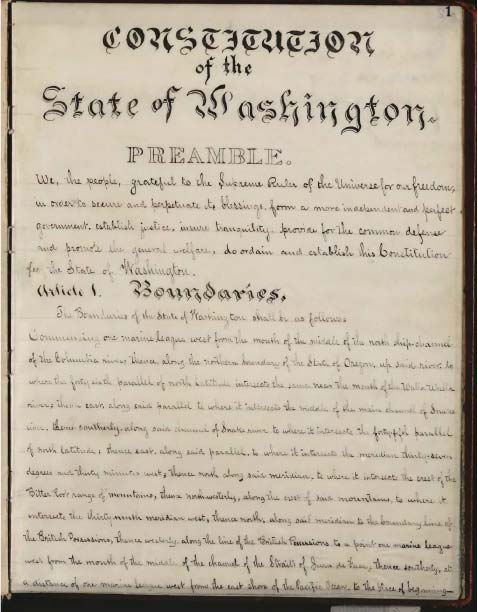 1
CONSTITUTION
of the
State of Washington.
PREAMBLE.
We, the people, grateful to the Supreme Ruler of the Universe for our freedom,
in order to secure and perpetuate its blessings, form a more independent and perfect
government, establish justice, insure tranquility, provide for the common defense
and promote the general welfare, do ordain and establish this Constitution
for the State of Washington.
Article 1. Boundaries.
The Boundaries of the State of Washington shall be as follows
Commencing one marine league west from the mouth of the middle of the north ship-channel
of the Columbia river, thence, along the northern boundary of the State of Oregon, up said river to
where the forty sixth parallel of north latitude intersects the same near the mouth of the Walla Walla
river, thence east, along said parallel to where it intersects the middle of the main channel of Snake
river, thence southerly, along said channel of Snake river to where it intersects the forty-fifth parallel
of north latitude; thence east, along said parallel, to where it intersects the meridian thirty-seven
degrees and thirty minutes west, thence north along said meridian, to where it intersects the crest of the
Bitter Root range of mountains, thence northwesterly, along the crest of said mountains, to where it
intersects the thirty-ninth meridian west, thence north, along said meridian to the boundary line of
the British Possessions, thence westerly, along the line of the British Possessions to a point one marine league
west from the mouth of the middle of the channel of the Straits of Juan de Fuca, thence southerly, at
a distance of one marine league west from the east shore of the Pacific Ocean, to the place of beginning